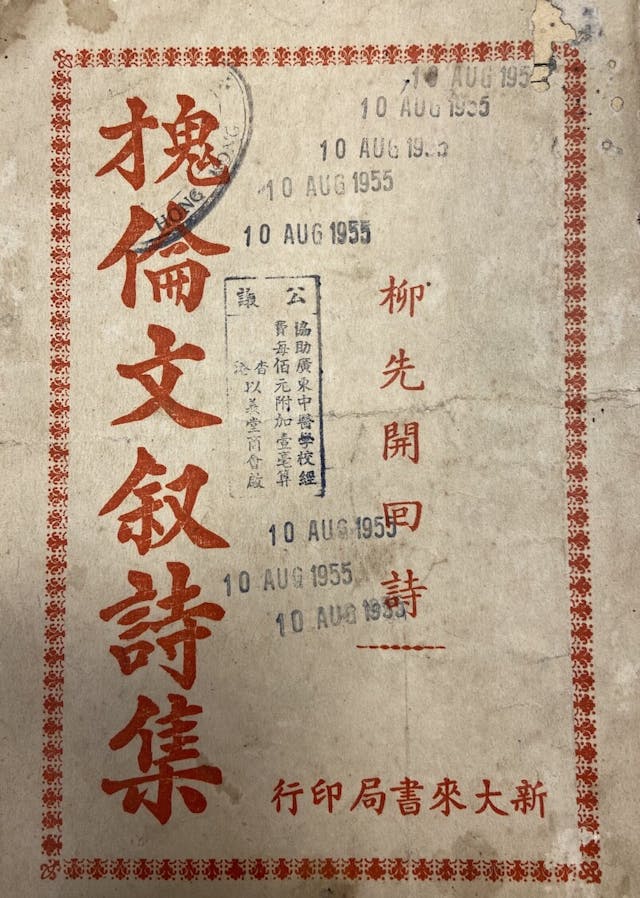 鬼才倫文叙詩集
柳先開回詩
新大來書局印行
HONG KONG
10 AUG 195
10 AUG 1955
10 AUG 19
10 AUG 1955
10 AUG 1955
公議
協助廣東中醫學校經
費每佰元附加壹毫算
香港以義堂商會啟
10 AUG 1955
10 AUG 1955
10 AUG 1955